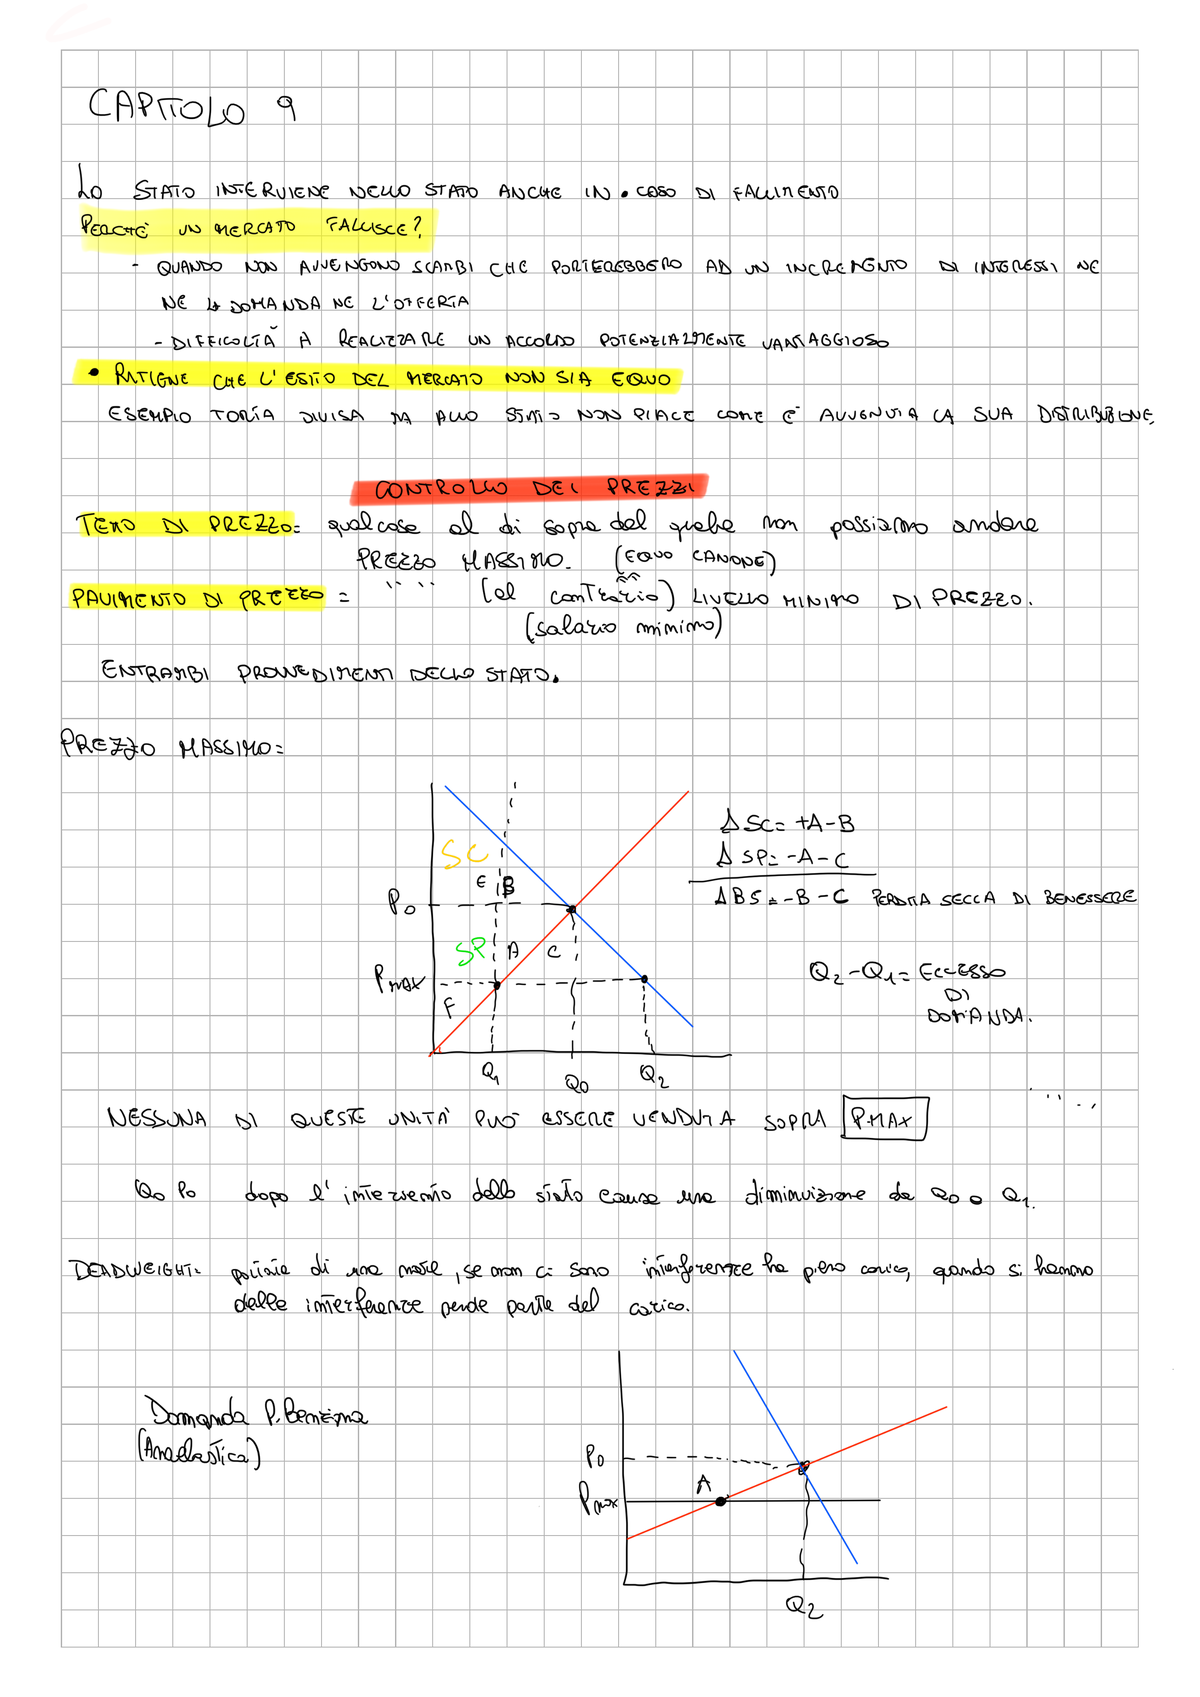 CAPITOLO 9
Lo STATO INTERVIENE NELLO STATO ANCHE IN • CASO DI FALLIMENTO
PERCHÉ UN MERCATO FALLISCE?
- QUANDO NON AVVENGONO SCAMBI CHE PORTEREBBERO AD UN INCREMENTO DI INTERESSI NE
NE LA DOMANDA NE L'OFFERTA
- DIFFICOLTÀ A REALIZZARE UN ACCORDO POTENZIALMENTE VANTAGGIOSO
• RITIENE CHE L'ESITO DEL MERCATO NON SIA EQUO
ESEMPIO TORTA DIVISA MA ALLO STATO NON PIACE COME È AVVENUTA LA SUA DISTRIBUZIONE.
CONTROLLO DEI PREZZI
TETTO DI PREZZO= qualcosa al di sopra del quale non possiamo andare
PREZZO MASSIMO. (EQUO CANONE)
PAVIMENTO DI PREZZO = " " (al contrario) LIVELLO MINIMO DI PREZZO.
(salario minimo)
ENTRAMBI PROVVEDIMENTI DELLO STATO.
PREZZO MASSIMO=
Δ SC= +A-B
Δ SP= -A-C
ΔBS=-B-C PERDITA SECCA DI BENESSERE
SC
E B
P0
SP A C
Pmax
F
Q2-Q1= ECCESSO
DI
DOMANDA.
Q1 Q0 Q2
NESSUNA DI QUESTE UNITÀ PUÒ ESSERE VENDUTA SOPRA PMAX
Q0 P0 dopo l'intervento dello stato causa una diminuizione da Q0 a Q1.
DEADWEIGHT= portata di una nave, se non ci sono interferenze ha pieno carico, quando si hanno
delle interferenze perde parte del carico.
Domanda P. Benzina
(Anaelastica)
P0
A
Pmax
Q2